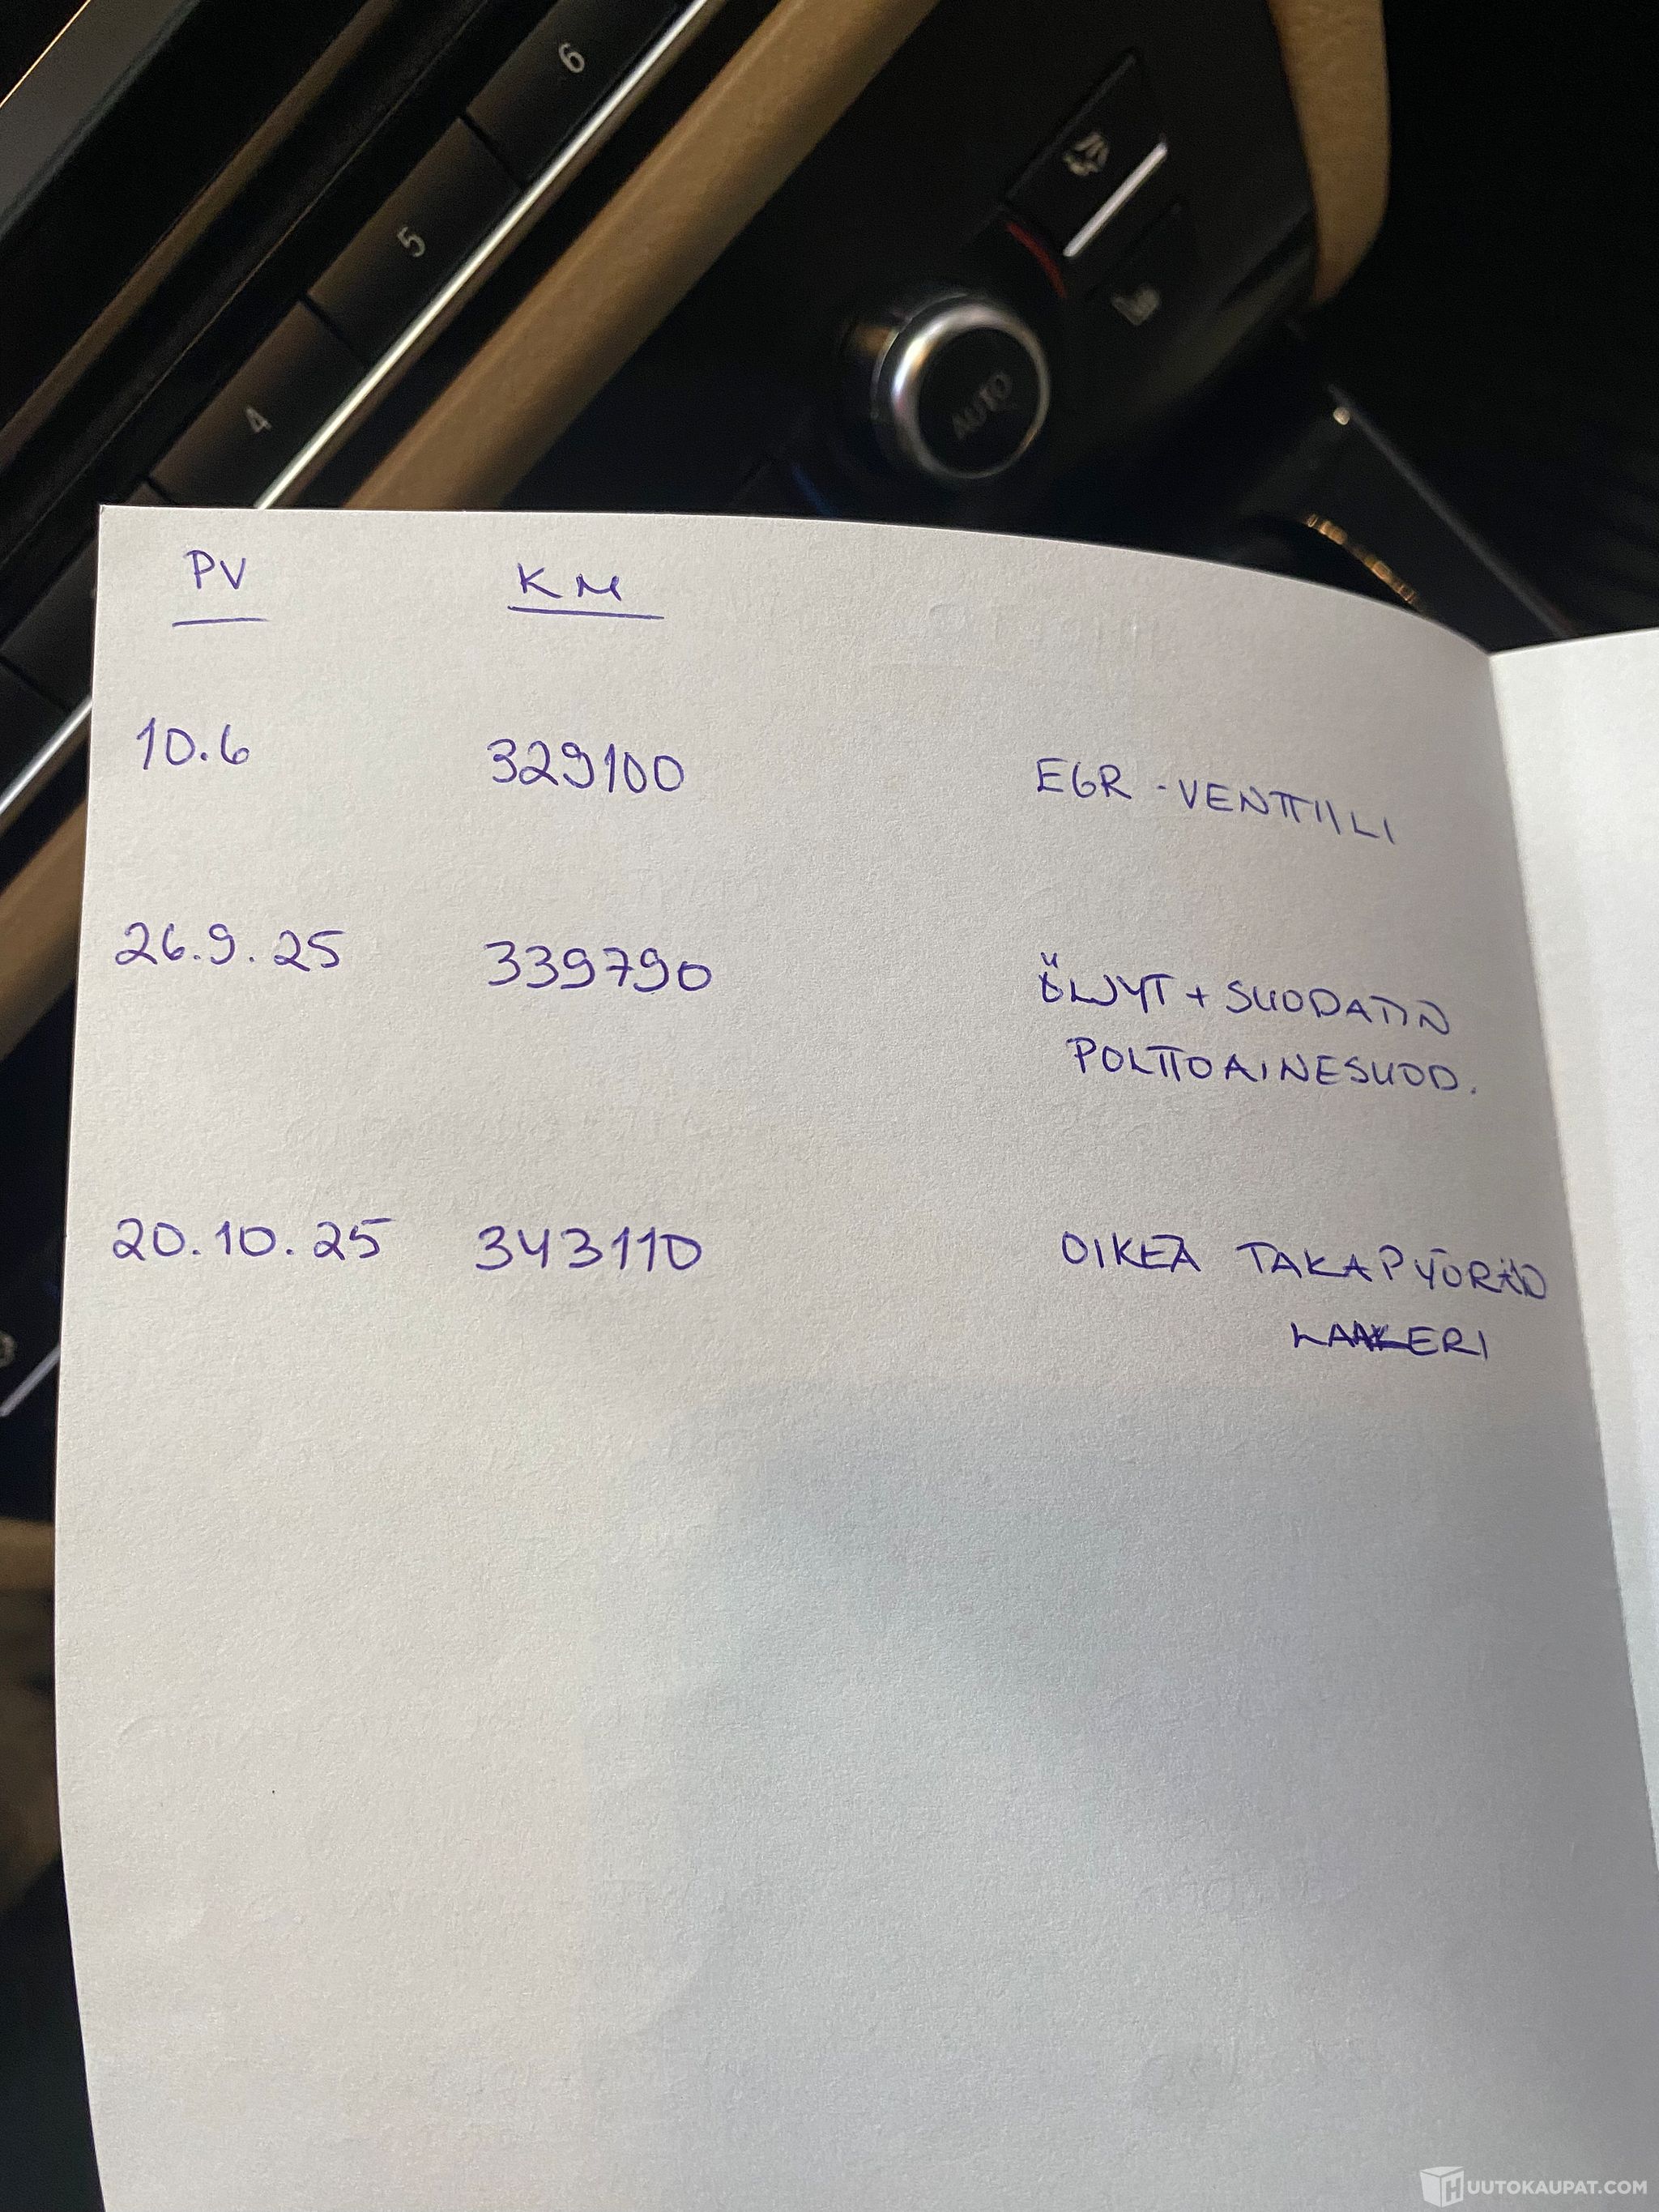 6
5
4
AUTO
PV KM
10.6 329100 EGR-VENTTIILI
26.9.25 339790 ÖLJYT + SUODATIN
POLTTOAINESUOD.
20.10.25 343110 OIKEA TAKAPYÖRÄN
LAAKERI
3
HUUTOKAUPAT.COM